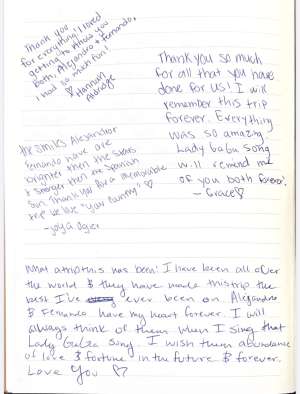 Thank you
for everything! I loved
getting to know you
both, Alejandro & Fernando,
I had so much fun!
♡ Hannah
Thank you so much
for all that you have
done for us! I will
remember this trip
forever. Everything
was so amazing.
Lady Gaba song
will remind me
of you both forever.
- Grace♡
The smiles Alejandro &
Fernando have are
brighter then the stars
& stronger then the Spanish
Sun. Thank you for a memorable
trip. We love "your country" ♡
What a trip this has been! I have been all over
the world & they have made this trip the
best I've ever been on. Alejandro
& Fernando have my heart forever. I will
always think of them when I sing that
Lady GaGa song. I wish them abundance
of love & fortune in the future & forever.
Love You ♡